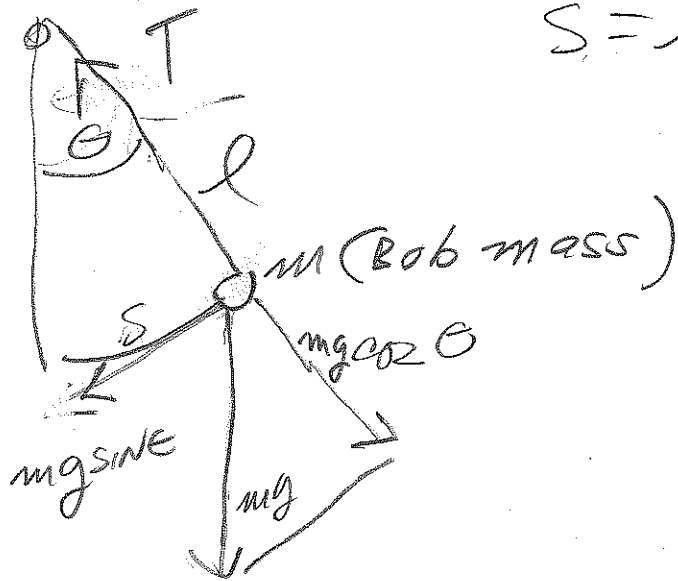 T
S =
θ
l
m (Bob mass)
S
mg cos θ
mg sin
mg